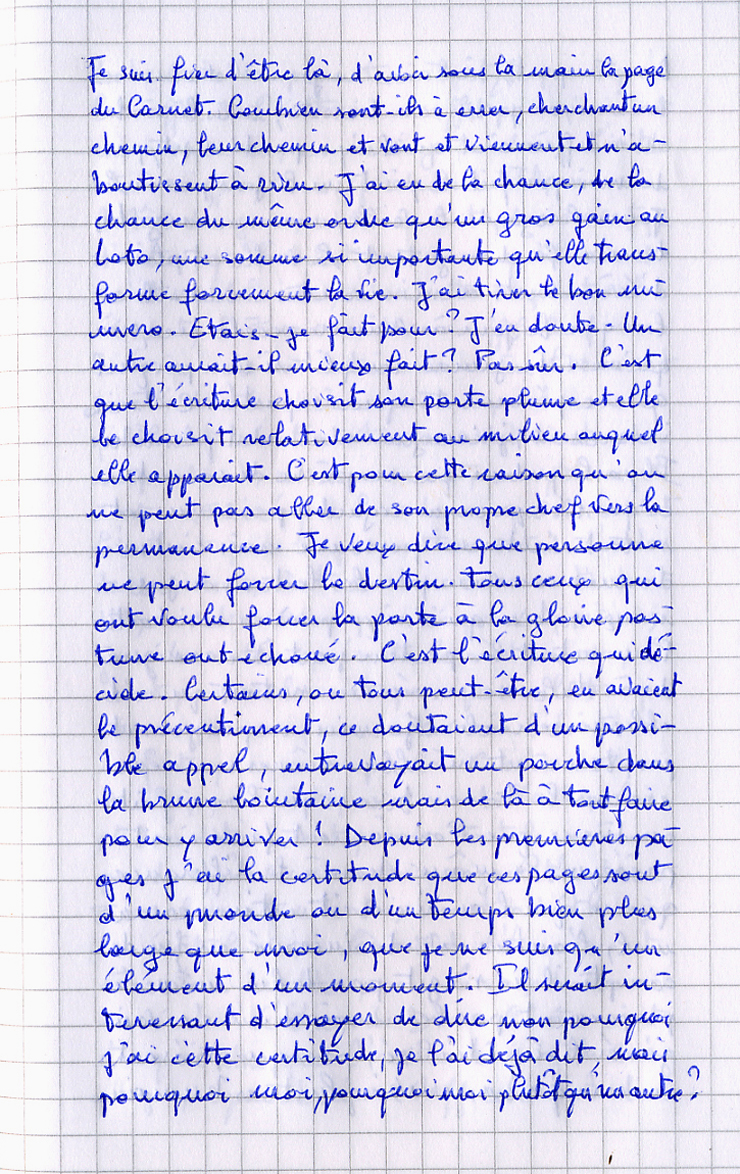 Je suis fier d'être là, d'avoir sous la main la page
du Carnet. Combien sont-ils à errer, cherchant un
chemin, leur chemin et vont et viennent et n'a-
boutissent à rien. J'ai eu de la chance, de la
chance du même ordre qu'un gros gain au
Loto, une somme si importante qu'elle trans-
forme forcement la vie. J'ai tirer le bon nu-
mero. Etais-je fait pour ? J'en doute. Un
autre aurait-il mieux fait ? Pas sûr. C'est
que l'écriture choisit son porte plume et elle
le choisit relativement au milieu auquel
elle apparait. C'est pour cette raison qu'on
ne peut pas aller de son propre chef vers la
permanence. Je veux dire que personne
ne peut forcer le destin. Tous ceux qui
ont voulu forcer la porte à la gloire pos-
tume ont échoué. C'est l'écriture qui dé-
cide. Certains, ou tous peut-être, en avaient
le précentiment, ce doutaient d'un possi-
ble appel, entrevoyait un porche dans
la brume lointaine mais de là à tout faire
pour y arriver ! Depuis les premières pa-
ges j'ai la certitude que ces pages sont
d'un monde ou d'un temps bien plus
large que moi, que je ne suis qu'un
élément d'un moment. Il serait in-
teressant d'essayer de dire non pourquoi
j'ai cette certitude, je l'ai déjà dit, mais
pourquoi moi, pourquoi moi plutôt qu'un autre ?